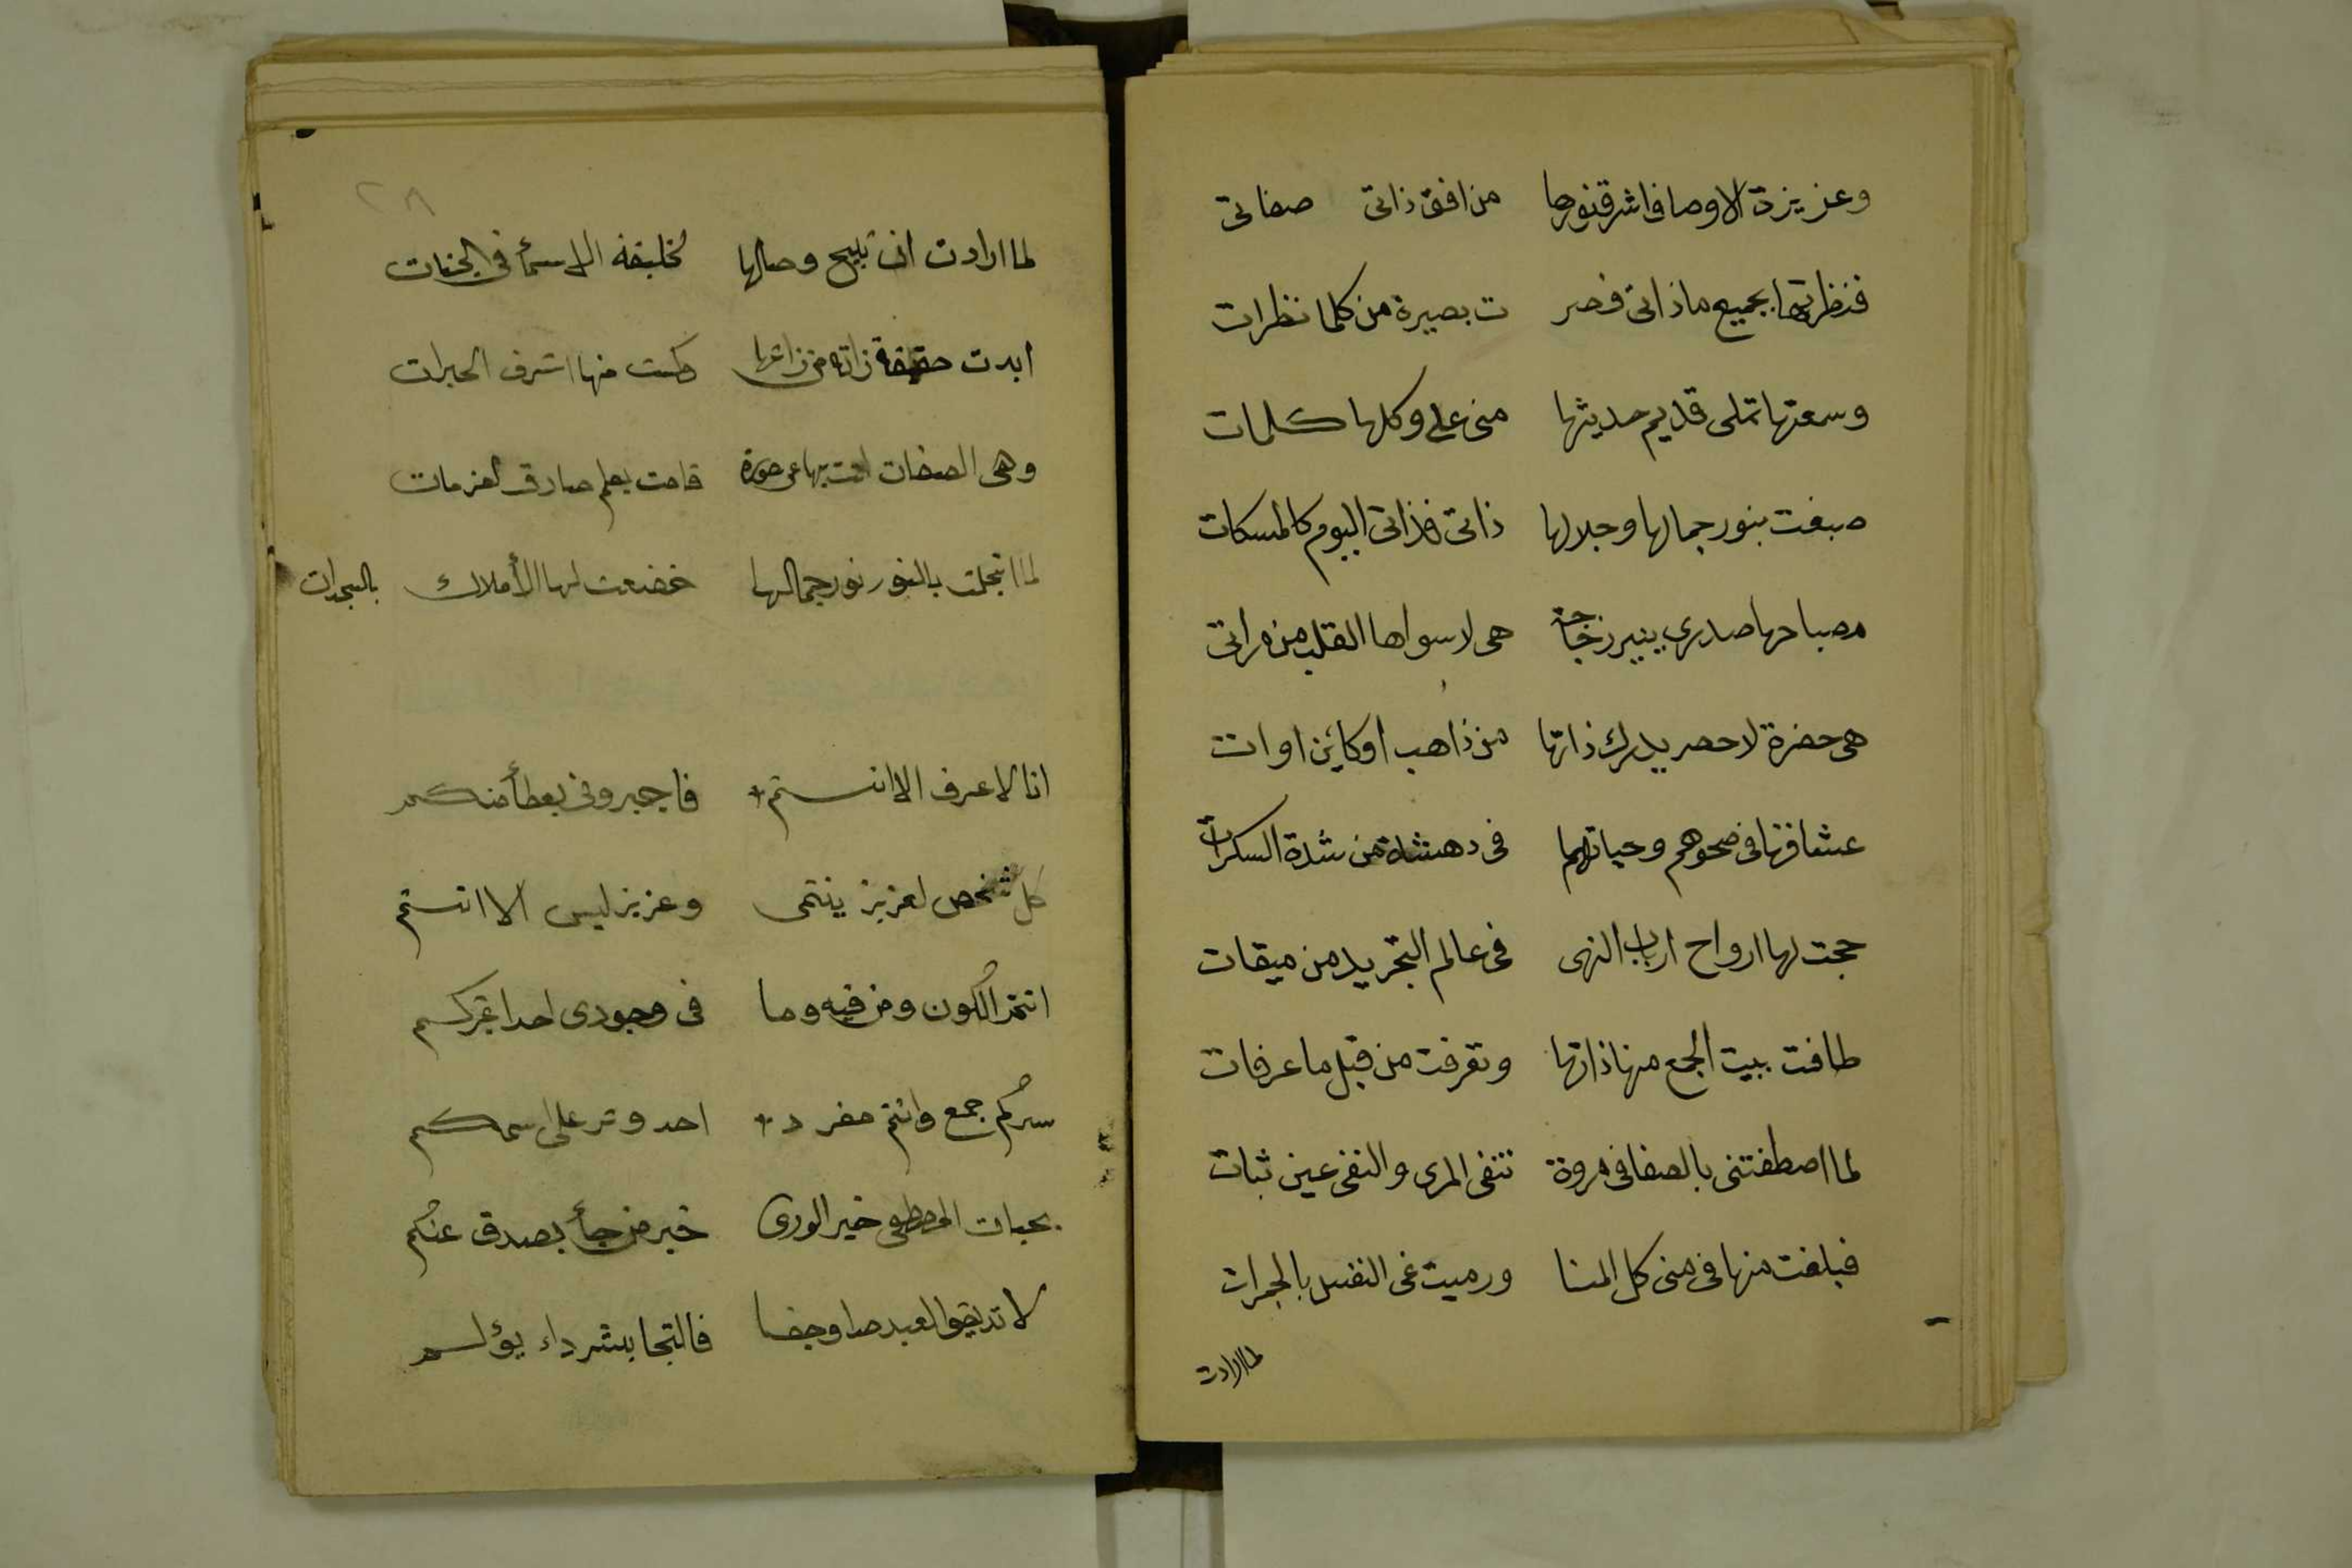 وعزيزة الاوصاف اشرق نورها من افق ذاتى صفاتى
فنظرتها بجميع ما ذاتى فصر ت بصيرة من كلما نظرات
وسمعتها تملى قديم حديثها منى على وكلها كلمات
صبغت بنور جمالها وجلالها ذاتى فذاتى اليوم كالمسكات
مصباحها صدرى ينير زجاجة هى لا سواها القلب من مراتى
هى حضرة لا حصر يدرك ذاتها من ذاهب او كاين او ات
عشاقها فى صحوهم وحياتهم فى دهشة من شدة السكرات
حجت لها ارواح ارباب النهى فى عالم التجريد من ميقات
طافت ببيت الجمع منها ذاتها وتعرفت من قبل ما عرفات
لما اصطفتنى بالصفا فى مروة تنفى المرى والنفى عين ثبات
فبلغت منها فى منى كل المنا ورميت غى النفس بالجمرات
لما ارادت
٢٨
لما ارادت ان تبيح وصالها لخليفة الاسمأ فى الجنات
ابدت حقيقة ذاته من ذاتها وكست منها اشرف الحبرات
وهى الصفات اتت بها عن صورة قامت بعلم صادق العزمات
لما تجلت بالنور نور جمالها خضعت لها الأملاك بالسجدات
انا لا اعرف الا انتم فاجبرونى بعطأ منكم
كل شخص لعزيز ينتمى وعزيز ليس الا انتم
انتم الكون ومن فيه وما فى وجودى احدا غيركم
سركم جمع وانتم مفرد احد وتر على اسمكم
بحيات المصطفى خير الورى خير من جأ بصدق عنكم
لا تذيقوا العبد صدا وجفا فالتجا بشر داء يؤلم